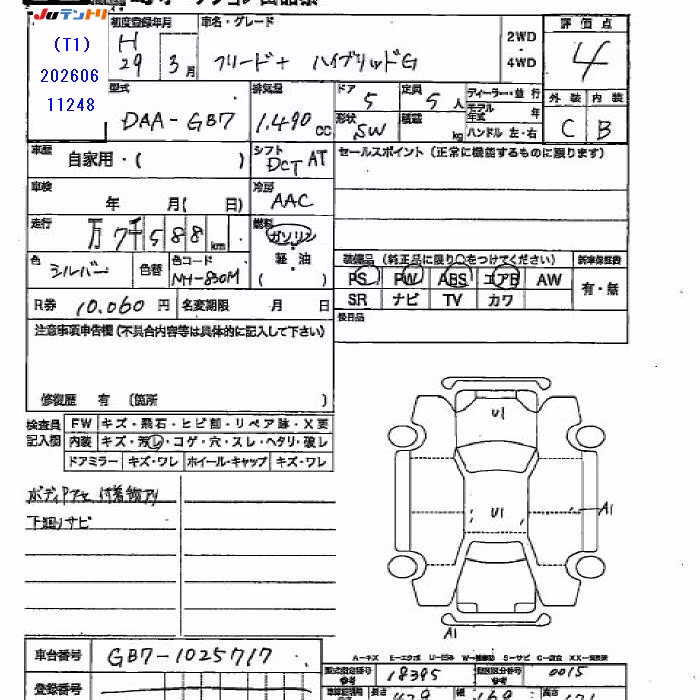 JUテントリ
(T1)
202606
11248
初度登録年月
H
29 3月
車名・グレード
フリード+ ハイブリッドG
2WD
・
4WD
評価点
4
外装 内装
C B
型式
DAA-GB7
排気量
1.490 cc
ドア
5
定員
5人
形状
SW
積載
kg
ディーラー・並行
モデル年式 年
ハンドル 左・右
車歴
自家用・( )
シフト
DCT AT
セールスポイント(正常に機能するものに限ります)
車検
年 月( 日)
冷房
AAC
走行
万7千588km
燃料
ガソリン
軽・油
( )
色
シルバー
色替
色コード
NH-830M
装備品(純正品に限り○をつけてください)
新車保証書
PS PW ABS エアB AW
SR ナビ TV カワ
有・無
R券 10.060円
名変期限 月 日
後日品
注意事項申告欄(不具合内容等は具体的に記入して下さい)
修復歴 有(箇所 )
検査員
記入欄
FW キズ・飛石・ヒビ割・リペア跡・X要
内装 キズ・汚れ・コゲ・穴・スレ・ヘタリ・破レ
ドアミラー キズ・ワレ ホイール・キャップ キズ・ワレ
ボディPアセ 付着物アリ
下廻りサビ
U1
U1
A1
A1
A-キズ E-エクボ U-凹み W-補修跡 S-サビ C-腐食 XX-交換済
車台番号
GB7-1025717
登録番号
型式指定番号
18395
類別区分番号
0015
長さ
幅
高さ